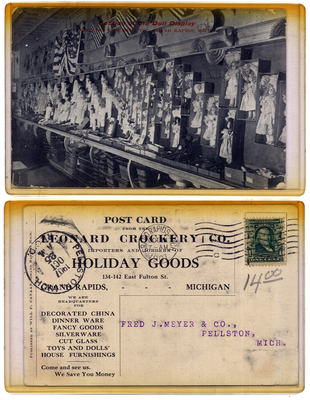 Doll Display
POST CARD
FROM THE
LEONARD CROCKERY CO.
IMPORTERS AND JOBBERS OF
HOLIDAY GOODS
134-142 East Fulton St.
GRAND RAPIDS, - - - MICHIGAN
WE ARE
HEADQUARTERS
FOR
DECORATED CHINA
DINNER WARE
FANCY GOODS
SILVERWARE
CUT GLASS
TOYS AND DOLLS'
HOUSE FURNISHINGS
Come and see us.
We Save You Money
PELLSTON
OCT
MICH.
14.00
FRED J.MEYER & CO.,
PELLSTON,
MICH.